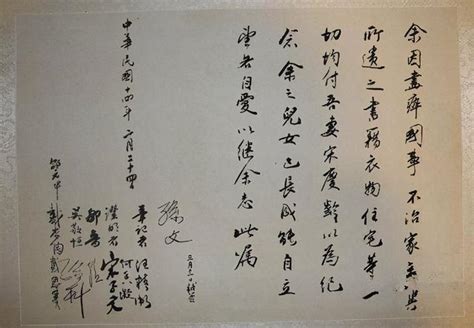 余因盡瘁國事 不治家產其
所遺之書籍衣物住宅等一
切均付吾妻宋慶齡以為紀
念余之兒女已長成能自立
望各自愛以繼余志此属
孫文
中華民國十四年 二月二十四日
筆記者 汪精衛
何香凝
證明者 宋子文
孫科
鄒魯
吳敬恒
戴恩賽
邵元冲